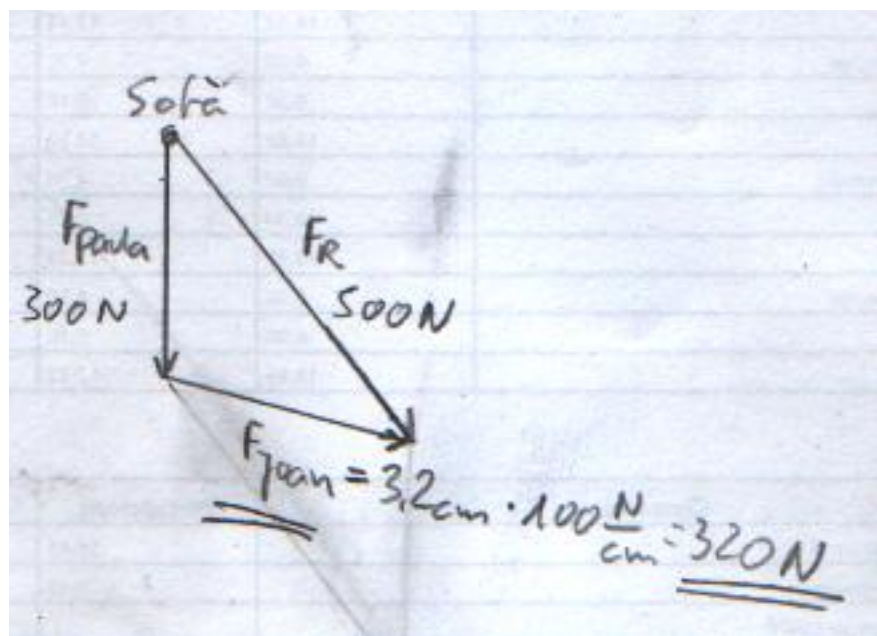 Sofà
F_Paula
F_R
300N
500N
F_Joan = 3,2cm · 100 N/cm = 320N